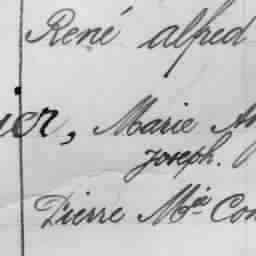 René alfred
ier, Marie
Joseph.
Pierre Mie